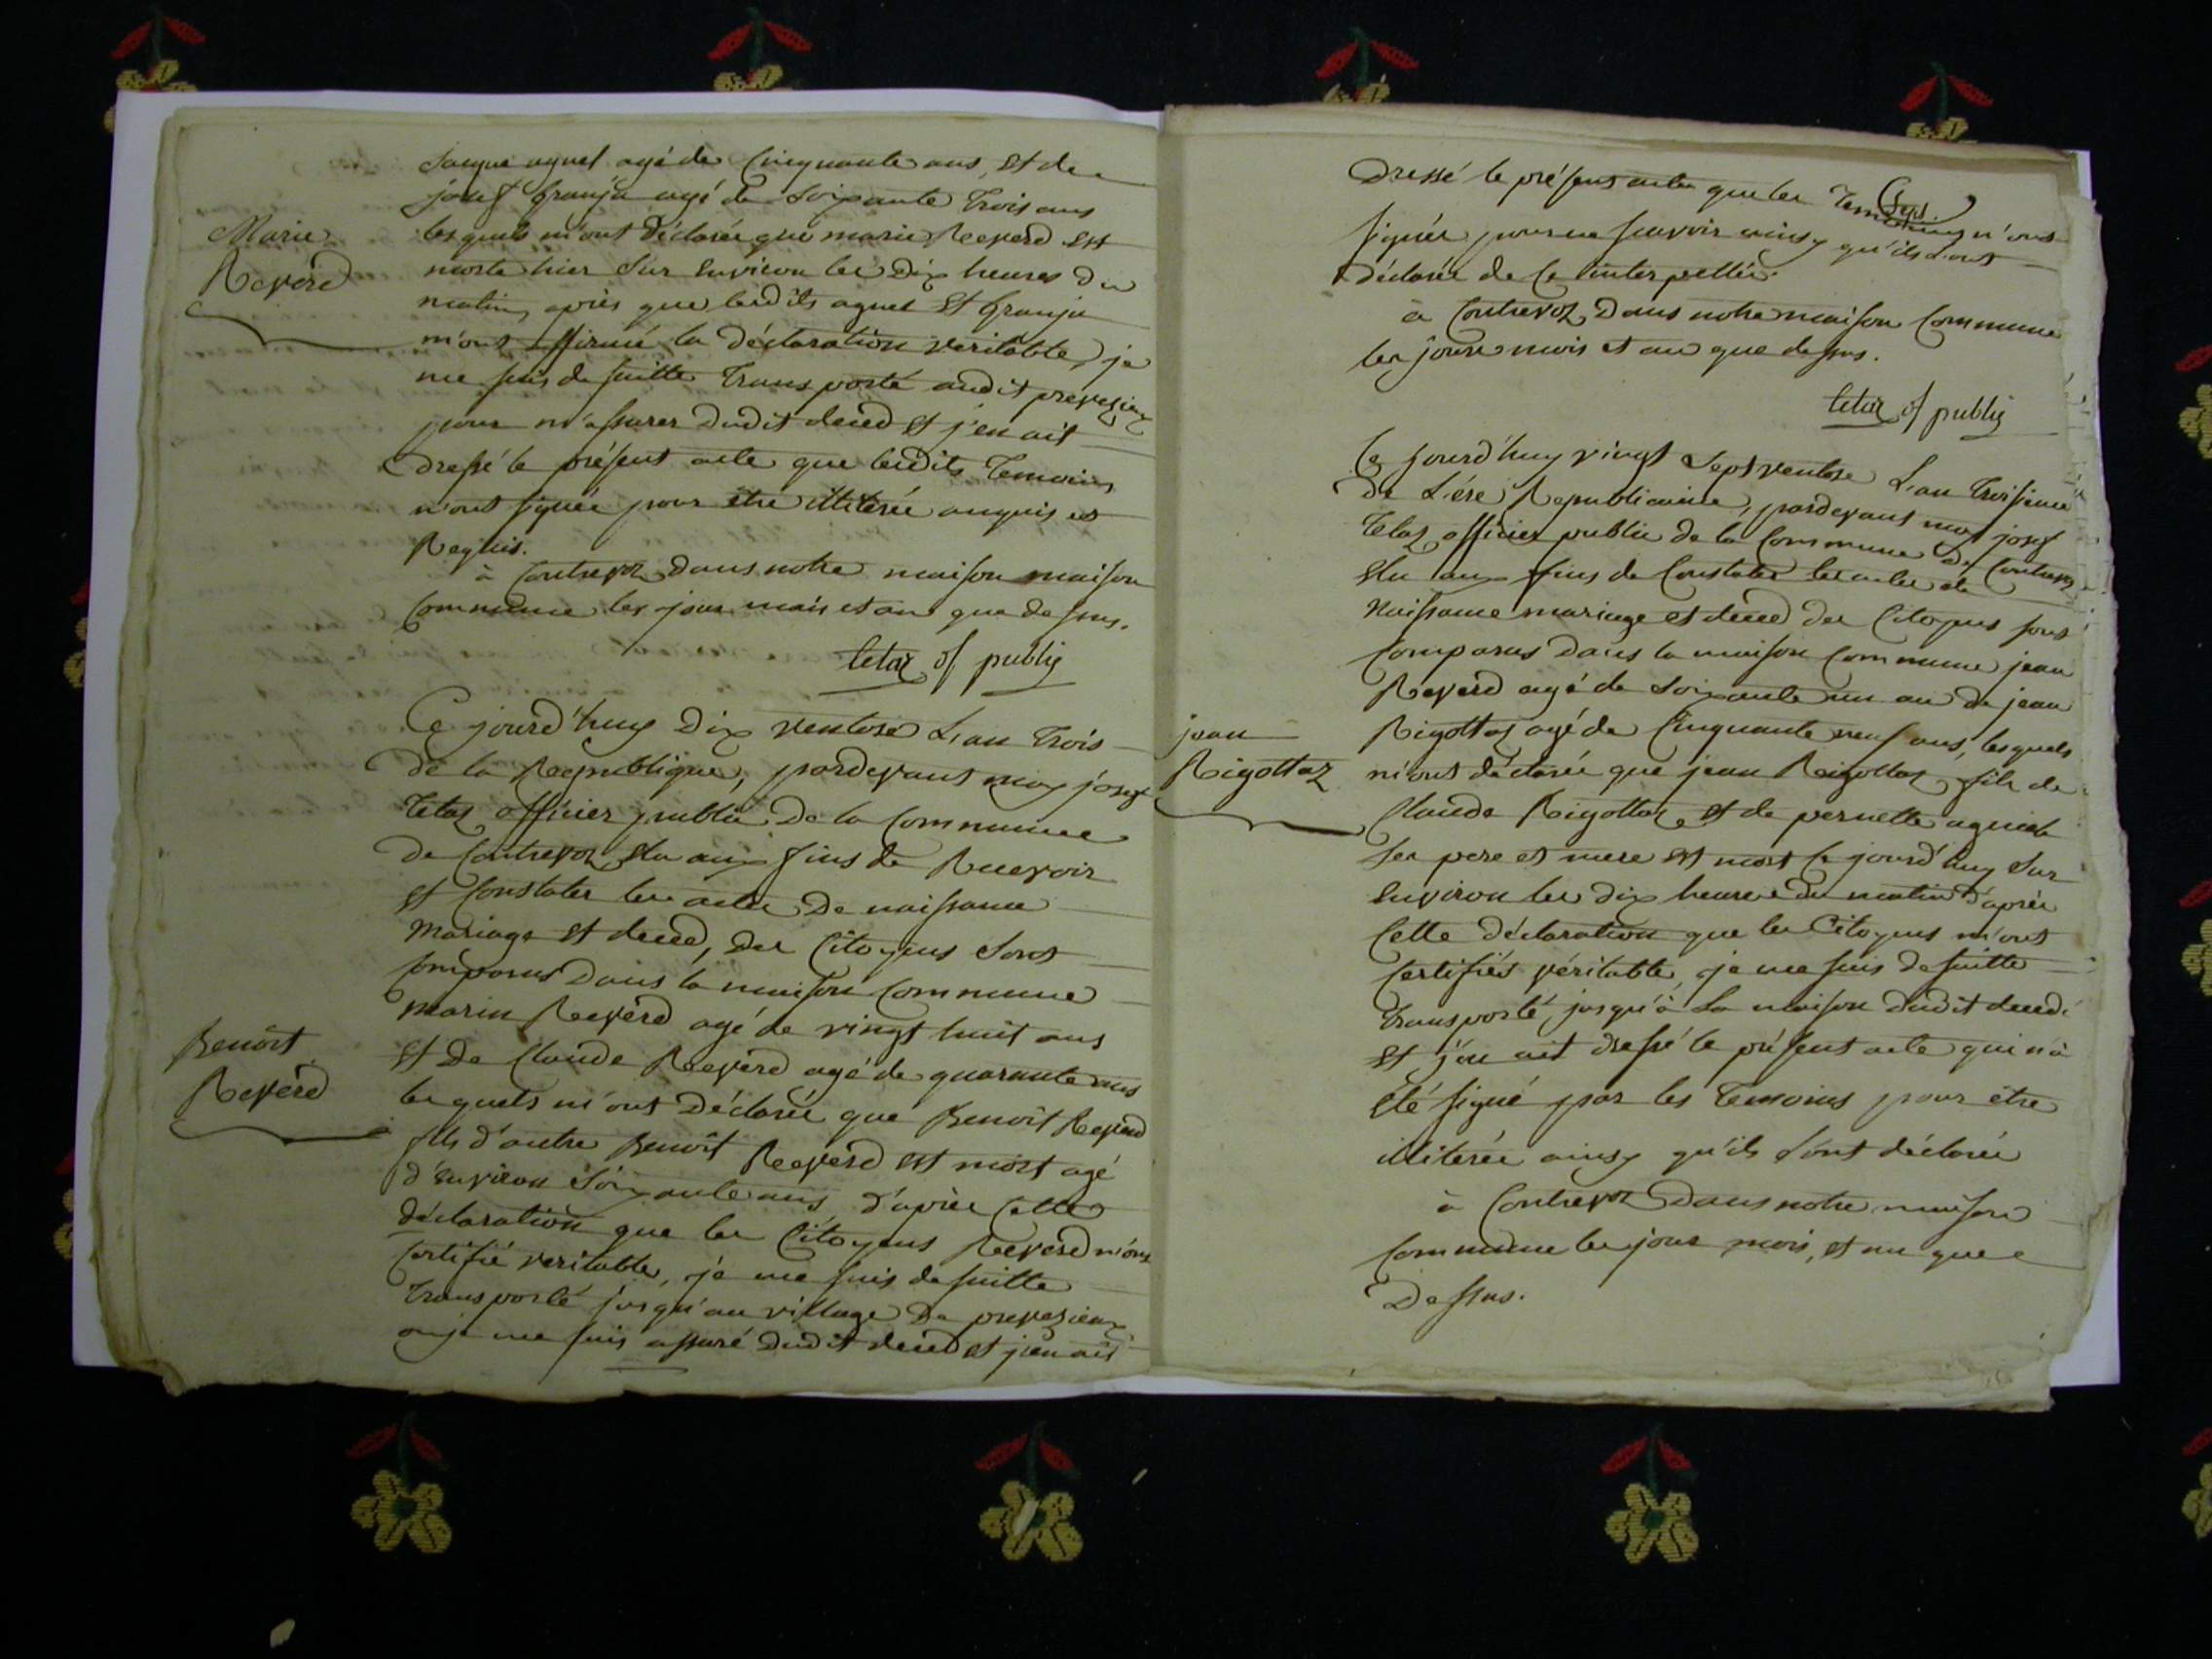 Jacque aguet agé de Cinquante ans, et de
josef granju agé de Soixante Trois ans
lesquels m'ont Déclarée que marie Reverd est
Marie
Reverd
morte hier Sur environ les Dix heures du
matin, après que lesdits aguet et granju
m'ont affirmé la déclaration veritable, je
me suis de suitte Transporté audit prevezieux
pour m'assurer dudit deced et j'en ait
dressé le présent acte que lesdits Temoins
n'ont signée pour être illiterée enquis et
Requis.
à Contrevoz dans notre maison maison
Commune les jour mois et an que dessus.
tetaz of publiq
Ce jourd'huy Dix ventose L'an Trois
de la Republique, pardevant moy josef
Tetaz officier public De la Commune
De Contrevoz élu aux fins de Recevoir
et Constater les actes De naissance
Mariage et deced, des Citoyens Sont
Comparus Dans la maison Commune
marin Reverd agé de vingt huit ans
et De Claude Reverd agé de quarante ans
Benoit
Reverd
lesquels m'ont Déclarée que Benoit Reverd
fils d'autre Benoît Reverd est mort agé
d'environ Soixante ans, d'après Cette
déclaration que les Citoyens Reverd m'ont
Certifié veritable, je me suis de suitte
Transporté jusqu'au village De prevezieux
ou je me suis assuré dudit deced et j'en ait
Dressé le présent acte que les Temoins n'ont
signée pour ne scavoir ainsy qu'ils L'ont
déclarée de Ce interpellée.
à Contrevoz Dans notre maison Commune
les jours mois et an que dessus.
tetaz of publiq
Ce jourd'huy vingt Sept ventose L'an Troisieme
De L'ére Republicaine, pardevant moy josef
Tetaz officier public de la Commune de Contrevoz
élu aux fins de Constater les actes de
Naissance mariage et deced des Citoyens sont
Comparus Dans la maison Commune jean
Reverd agé de Soixante un an de jean
Rigottaz agé de Cinquante neuf ans, lesquels
jean
Rigottaz
m'ont déclarée que jean Rigottaz fils de
Claude Rigottaz et de pernette
Ses pere et mere est mort Ce jourd'huy Sur
environ les dix heures du matin d'après
Cette déclaration que les Citoyens m'ont
Certifiés véritable, je me suis de suitte
Transporté, jusqu'à La maison dudit decedé
et j'en ait dressé le présent acte qui n'a
été signé par les Temoins pour etre
illiterée ainsy qu'ils L'ont déclarée
à Contrevoz Dans notre maison
Commune les jour mois, et an que
Dessus.